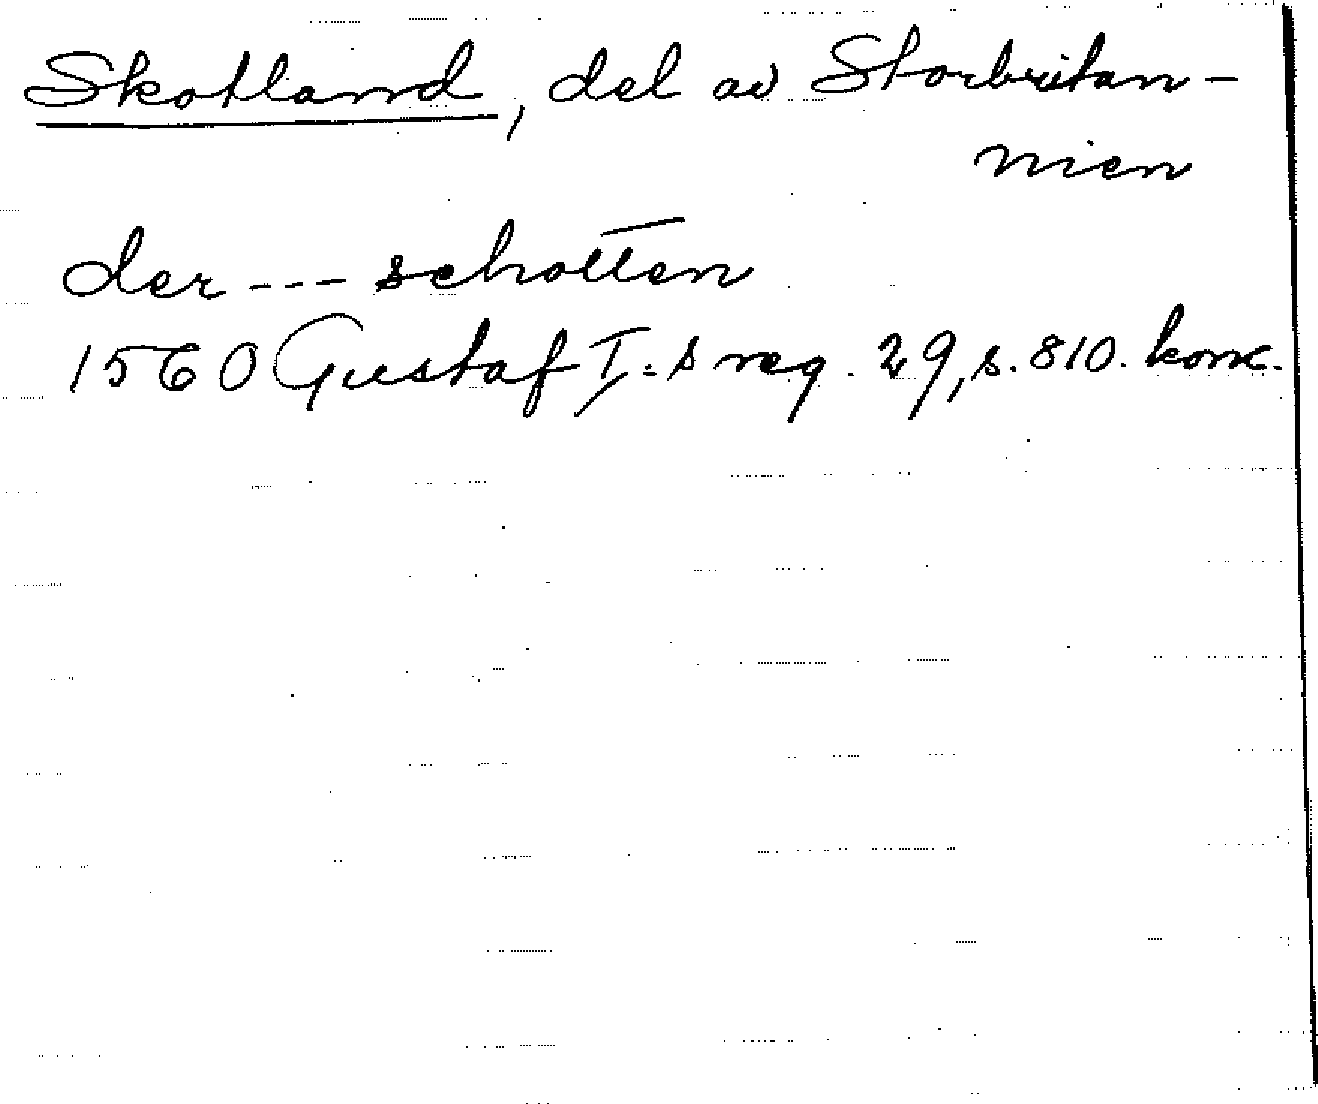 Skotland, del av Storbritan-
nien
der --- schotten
1560 Gustaf I:s reg. 29, s. 810. konc.